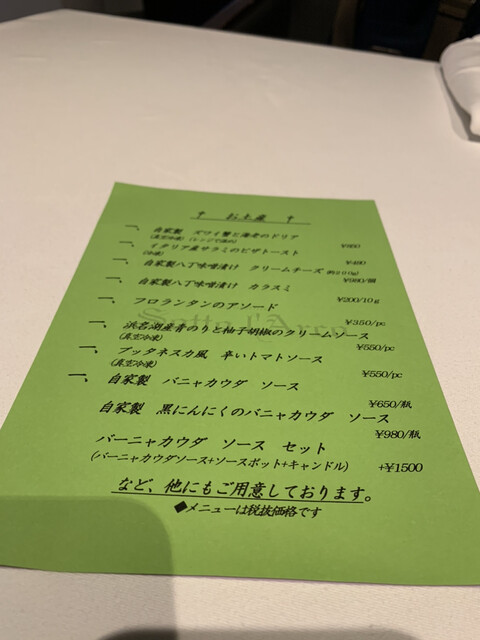 † お土産 †
一、 自家製 ズワイ蟹と海老のドリア
(真空冷凍) (レンジで温め) ¥850
一、 イタリア産サラミのピザトースト
(冷凍) ¥490
一、 自家製八丁味噌漬け クリームチーズ 約200g)
¥980/個
一、 自家製八丁味噌漬け カラスミ
¥200/10g
一、 フロランタンのアソード
¥350/pc
一、 浜名湖産青のりと柚子胡椒のクリームソース
(真空冷凍) ¥550/pc
一、 プッタネスカ風 辛いトマトソース
(真空冷凍) ¥550/pc
一、 自家製 バニャカウダ ソース
¥650/瓶
自家製 黒にんにくのバニャカウダ ソース
¥980/瓶
バーニャカウダ ソース セット
(バーニャカウダソース+ソースポット+キャンドル) +¥1500
など、他にもご用意しております。
◆メニューは税抜価格です
Sotto l'Arco